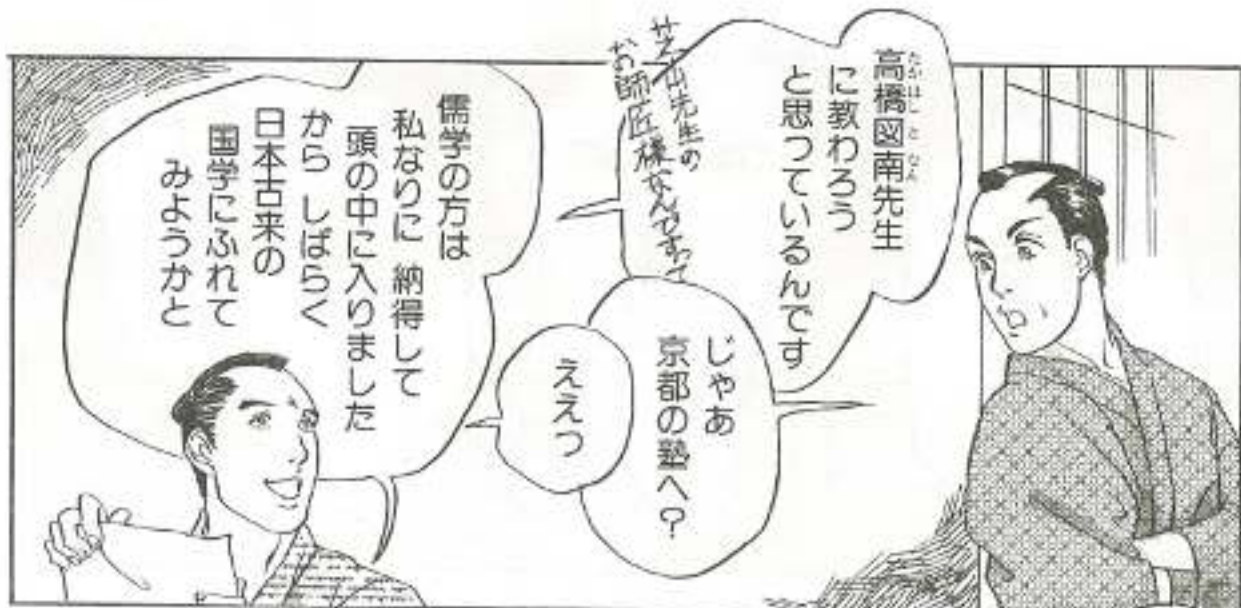 高橋図南先生
に教わろう
と思っているんです
芝山先生の
お師匠様なんですって
じゃあ
京都の塾へ？
ええっ
儒学の方は
私なりに 納得して
頭の中に入りました
から しばらく
日本古来の
国学にふれて
みようかと